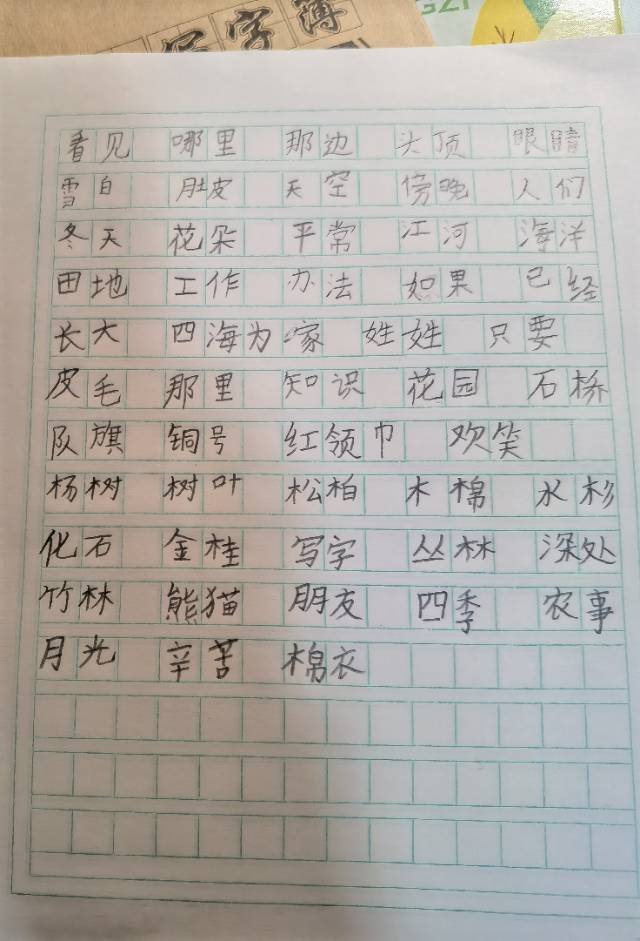 字簿
GZI
看见 哪里 那边 头顶 眼睛
雪白 肚皮 天空 傍晚 人们
冬天 花朵 平常 江河 海洋
田地 工作 办法 如果 已经
长大 四海为家 姓姓 只要
皮毛 那里 知识 花园 石桥
队旗 铜号 红领巾 欢笑
杨树 树叶 松柏 木棉 水杉
化石 金桂 写字 丛林 深处
竹林 熊猫 朋友 四季 农事
月光 辛苦 棉衣